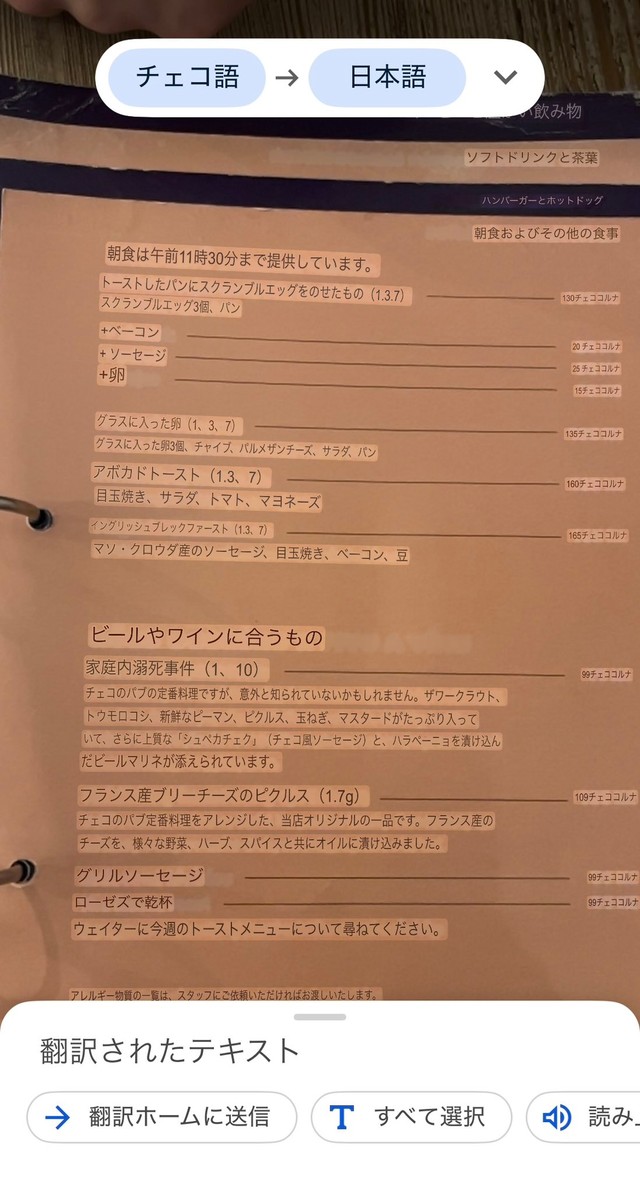 チェコ語 → 日本語
い飲み物
ソフトドリンクと茶葉
ハンバーガーとホットドッグ
朝食およびその他の食事
朝食は午前11時30分まで提供しています。
トーストしたパンにスクランブルエッグをのせたもの（1.3.7） 130チェココルナ
スクランブルエッグ3個、パン
+ベーコン 20チェココルナ
+ソーセージ 25チェココルナ
+卵 15チェココルナ
グラスに入った卵（1、3、7） 135チェココルナ
グラスに入った卵3個、チャイブ、パルメザンチーズ、サラダ、パン
アボカドトースト（1.3、7） 160チェココルナ
目玉焼き、サラダ、トマト、マヨネーズ
イングリッシュブレックファースト（1.3、7） 165チェココルナ
マソ・クロウダ産のソーセージ、目玉焼き、ベーコン、豆
ビールやワインに合うもの
家庭内溺死事件（1、10） 99チェココルナ
チェコのパブの定番料理ですが、意外と知られていないかもしれません。ザワークラウト、
トウモロコシ、新鮮なピーマン、ピクルス、玉ねぎ、マスタードがたっぷり入って
いて、さらに上質な「シュペカチェク」（チェコ風ソーセージ）と、ハラペーニョを漬け込ん
だビールマリネが添えられています。
フランス産ブリーチーズのピクルス（1.7g） 109チェココルナ
チェコのパブ定番料理をアレンジした、当店オリジナルの一品です。フランス産の
チーズを、様々な野菜、ハーブ、スパイスと共にオイルに漬け込みました。
グリルソーセージ 99チェココルナ
ローゼズで乾杯 99チェココルナ
ウェイターに今週のトーストメニューについて尋ねてください。
アレルギー物質の一覧は、スタッフにご依頼いただければお渡しいたします。
翻訳されたテキスト
翻訳ホームに送信 すべて選択 読み上